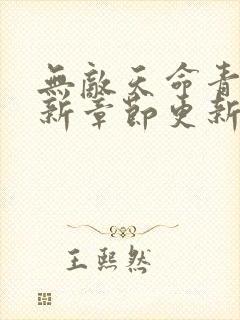 無敵天命青
新章節更新
王熙然